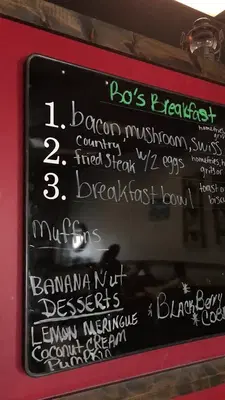 Bo's Breakfast
1. bacon mushroom, swiss
2. country fried steak w/2 eggs
3. breakfast bowl
toast or
muffins
BANANA Nut
DESSERTS
LEMON MERINGUE
Coconut CREAM
Pumpkin
BLACKBerry